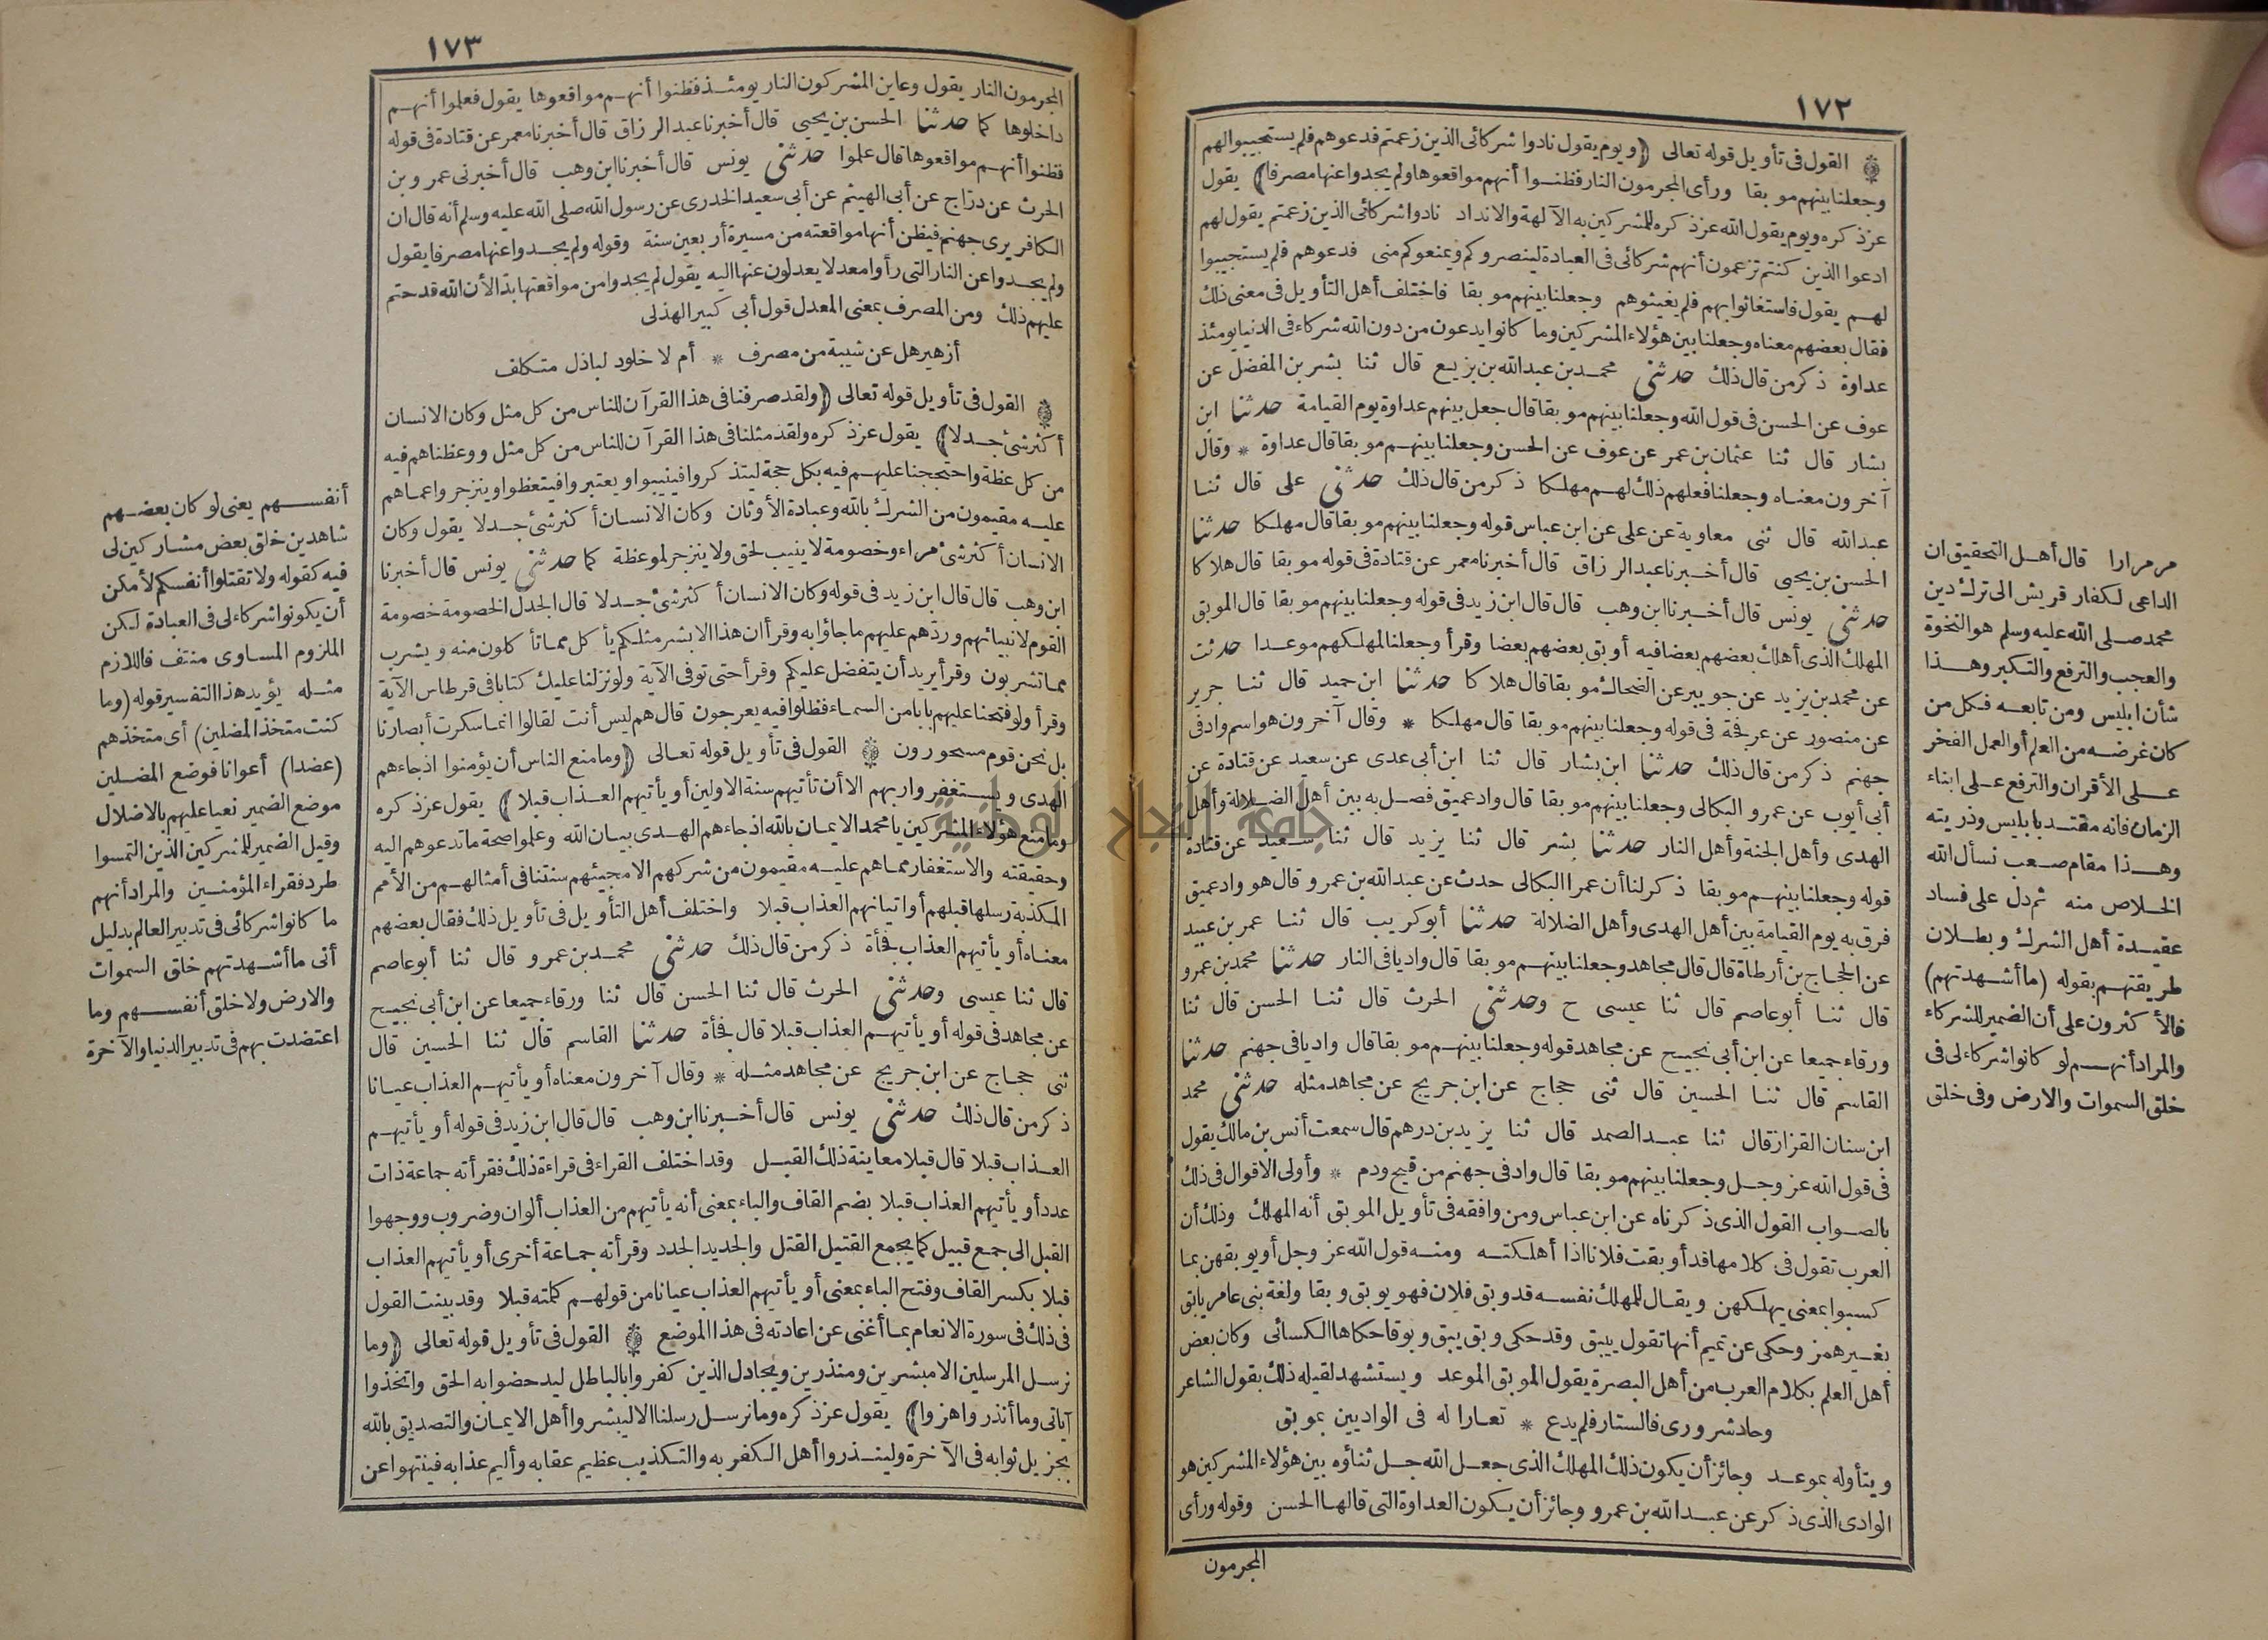 ١٧٢
القول في تأويل قوله تعالى ﴿ويوم يقول نادوا شركائي الذين زعمتم فدعوهم فلم يستجيبوا لهم
وجعلنا بينهم موبقا ورأى المجرمون النار فظنوا أنهم مواقعوها ولم يجدوا عنها مصرفا﴾ يقول
عز ذكره ويوم يقول الله عز ذكره للمشركين به الآلهة والانداد نادوا شركائي الذين زعمتم يقول لهم
ادعوا الذين كنتم تزعمون أنهم شركائي في العبادة لينصروكم ويمنعوكم مني فدعوهم فلم يستجيبوا
لهم يقول فاستغاثوا بهم فلم يغيثوهم وجعلنا بينهم موبقا فاختلف أهل التأويل في معنى ذلك
فقال بعضهم معناه وجعلنا بين هؤلاء المشركين وما كانوا يدعون من دون الله شركاء في الدنيا يومئذ
عداوة ذكر من قال ذلك حدثني محمد بن عبد الله بن بزيع قال ثنا بشر بن المفضل عن
عوف عن الحسن في قول الله وجعلنا بينهم موبقا قال جعل بينهم عداوة يوم القيامة حدثنا ابن
بشار قال ثنا عثمان بن عمر عن عوف عن الحسن وجعلنا بينهم موبقا قال عداوة * وقال
آخرون معناه وجعلنا فعلهم ذلك لهم مهلكا ذكر من قال ذلك حدثني على قال ثنا
عبد الله قال ثني معاوية عن على عن ابن عباس قوله وجعلنا بينهم موبقا قال مهلكا حدثنا
الحسن بن يحيى قال أخبرنا عبد الرزاق قال أخبرنا معمر عن قتادة في قوله موبقا قال هلاكا
حدثني يونس قال أخبرنا ابن وهب قال قال ابن زيد في قوله وجعلنا بينهم موبقا قال الموبق
المهلك الذي أهلك بعضهم بعضا فيه أوبق بعضهم بعضا وقرأ وجعلنا لمهلكهم موعدا حدثت
عن محمد بن يزيد عن جويبر عن الضحاك موبقا قال هلاكا حدثنا ابن حميد قال ثنا جرير
عن منصور عن عرفجة في قوله وجعلنا بينهم موبقا قال مهلكا * وقال آخرون هو اسم واد في
جهنم ذكر من قال ذلك حدثنا ابن بشار قال ثنا ابن أبي عدى عن سعيد عن قتادة عن
أبي أيوب عن عمرو البكالي وجعلنا بينهم موبقا قال واد عميق فصل به بين أهل الضلالة وأهل
الهدى وأهل الجنة وأهل النار حدثنا بشر قال ثنا يزيد قال ثنا سعيد عن قتادة
قوله وجعلنا بينهم موبقا ذكر لنا أن عمرا البكالي حدث عن عبد الله بن عمرو قال هو واد عميق
فرق به يوم القيامة بين أهل الهدى وأهل الضلالة حدثنا أبو كريب قال ثنا عمر بن عبيد
عن الحجاج بن أرطاة قال قال مجاهد وجعلنا بينهم موبقا قال واديا في النار حدثنا محمد بن عمرو
قال ثنا أبو عاصم قال ثنا عيسى ح وحدثني الحرث قال ثنا الحسن قال ثنا
ورقاء جميعا عن ابن أبي نجيح عن مجاهد قوله وجعلنا بينهم موبقا قال واديا في جهنم حدثنا
القاسم قال ثنا الحسين قال ثني حجاج عن ابن جريج عن مجاهد مثله حدثني محمد
ابن سنان القزاز قال ثنا عبد الصمد قال ثنا يزيد بن درهم قال سمعت أنس بن مالك يقول
في قول الله عز وجل وجعلنا بينهم موبقا قال واد في جهنم من قيح ودم * وأولى الاقوال في ذلك
بالصواب القول الذي ذكرناه عن ابن عباس ومن وافقه في تأويل الموبق أنه المهلك وذلك أن
العرب تقول في كلامها قد أوبقت فلانا اذا أهلكته ومنه قول الله عز وجل أو يوبقهن بما
كسبوا بمعنى يهلكهن ويقال للمهلك نفسه قد وبق فلان فهو يوبق وبقا ولغة بني عامر يابق
بغير همز وحكى عن تميم أنها تقول ييبق وقد حكى وبق يبق وبوقا حكاها الكسائي وكان بعض
أهل العلم بكلام العرب من أهل البصرة يقول الموبق الموعد ويستشهد لقيله ذلك بقول الشاعر
وحاد شروري فالستار فلم يدع * تعارا له في الواديين بموبق
ويتأوله بموعد وجائز أن يكون ذلك المهلك الذي جعل الله جل ثناؤه بين هؤلاء المشركين هو
الوادي الذي ذكر عن عبد الله بن عمرو وجائز أن يكون العداوة التي قالها الحسن وقوله ورأى
المجرمون
مرمرارا قال أهل التحقيق ان
الداعي لكفار قريش الى ترك دين
محمد صلى الله عليه وسلم هو النخوة
والعجب والترفع والتكبر وهذا
شأن ابليس ومن تابعه فكل من
كان غرضه من العلم أو العمل الفخر
على الأقران والترفع على ابناء
الزمان فانه مقتد بابليس وذريته
وهذا مقام صعب نسأل الله
الخلاص منه ثم دل على فساد
عقيدة أهل الشرك وبطلان
طريقتهم بقوله (ما أشهدتهم)
فالأكثرون على أن الضمير للشركاء
والمراد أنهم لو كانوا شركاء لي في
خلق السموات والارض وفي خلق
١٧٣
المجرمون النار يقول وعاين المشركون النار يومئذ فظنوا أنهم مواقعوها يقول فعلموا أنهم
داخلوها كما حدثنا الحسن بن يحيى قال أخبرنا عبد الرزاق قال أخبرنا معمر عن قتادة في قوله
فظنوا أنهم مواقعوها قال علموا حدثني يونس قال أخبرنا ابن وهب قال أخبرني عمرو بن
الحرث عن درّاج عن أبي الهيثم عن أبي سعيد الخدري عن رسول الله صلى الله عليه وسلم أنه قال ان
الكافر يرى جهنم فيظن أنها مواقعته من مسيرة أربعين سنة وقوله ولم يجدوا عنها مصرفا يقول
ولم يجدوا عن النار التي رأوا معدلا يعدلون عنها اليه يقول لم يجدوا من مواقعتها بدّا لأن الله قد حتم
عليهم ذلك ومن المصرف بمعنى المعدل قول أبي كبير الهذلى
أزهير هل عن شيبة من مصرف * أم لا خلود لباذل متكلف
القول في تأويل قوله تعالى ﴿ولقد صرفنا في هذا القرآن للناس من كل مثل وكان الانسان
أكثر شئ جدلا﴾ يقول عز ذكره ولقد مثلنا في هذا القرآن للناس من كل مثل ووعظناهم فيه
من كل عظة واحتججنا عليهم فيه بكل حجة ليتذكروا فينيبوا ويعتبروا فيتعظوا وينزجروا عما هم
عليه مقيمون من الشرك بالله وعبادة الأوثان وكان الانسان أكثر شئ جدلا يقول وكان
الانسان أكثر شئ مراء وخصومة لا ينيب لحق ولا ينزجر لموعظة كما حدثني يونس قال أخبرنا
ابن وهب قال قال ابن زيد في قوله وكان الانسان أكثر شئ جدلا قال الجدل الخصومة خصومة
القوم لانبيائهم وردّهم عليهم ما جاؤا به وقرأ ان هذا الا بشر مثلكم يأكل مما تأكلون منه ويشرب
مما تشربون وقرأ يريد أن يتفضل عليكم وقرأ حتى توفى الآية ولو نزلنا عليك كتابا في قرطاس الآية
وقرأ ولو فتحنا عليهم بابا من السماء فظلوا فيه يعرجون قال هم ليس أنت لقالوا انما سكرت أبصارنا
بل نحن قوم مسحورون القول في تأويل قوله تعالى ﴿وما منع الناس أن يؤمنوا اذ جاءهم
الهدى ويستغفروا ربهم الا أن تأتيهم سنة الاولين أو يأتيهم العذاب قبلا﴾ يقول عز ذكره
وما منع هؤلاء المشركين يا محمد الايمان بالله اذ جاءهم الهدى بيان الله وعلموا صحة ما تدعوهم اليه
وحقيقته والاستغفار مما هم عليه مقيمون من شركهم الا مجيئهم سنتنا في أمثالهم من الأمم
المكذبة رسلها قبلهم أو اتيانهم العذاب قبلا واختلف أهل التأويل في تأويل ذلك فقال بعضهم
معناه أو يأتيهم العذاب فجأة ذكر من قال ذلك حدثني محمد بن عمرو قال ثنا أبو عاصم
قال ثنا عيسى وحدثني الحرث قال ثنا الحسن قال ثنا ورقاء جميعا عن ابن أبي نجيح
عن مجاهد في قوله أو يأتيهم العذاب قبلا قال فجأة حدثنا القاسم قال ثنا الحسين قال
ثني حجاج عن ابن جريج عن مجاهد مثله * وقال آخرون معناه أو يأتيهم العذاب عيانا
ذكر من قال ذلك حدثني يونس قال أخبرنا ابن وهب قال قال ابن زيد في قوله أو يأتيهم
العذاب قبلا قال قبلا معاينة ذلك القبل وقد اختلف القراء في قراءة ذلك فقرأته جماعة ذات
عدد أو يأتيهم العذاب قبلا بضم القاف والباء بمعنى أنه يأتيهم من العذاب ألوان وضروب ووجهوا
القبل الى جمع قبيل كما يجمع القتيل القتل والجديد الجدد وقرأته جماعة أخرى أو يأتيهم العذاب
قبلا بكسر القاف وفتح الباء بمعنى أو يأتيهم العذاب عيانا من قولهم كلمته قبلا وقد بينت القول
في ذلك في سورة الانعام بما أغنى عن اعادته في هذا الموضع القول في تأويل قوله تعالى ﴿وما
نرسل المرسلين الا مبشرين ومنذرين ويجادل الذين كفروا بالباطل ليدحضوا به الحق واتخذوا
آياتي وما أنذروا هزوا﴾ يقول عز ذكره وما نرسل رسلنا الا ليبشروا أهل الايمان والتصديق بالله
بجزيل ثوابه في الآخرة ولينذروا أهل الكفر به والتكذيب عظيم عقابه وأليم عذابه فينتهوا عن
أنفسهم يعني لو كان بعضهم
شاهدين خلق بعض مشاركين لي
فيه كقوله ولا تقتلوا أنفسكم لأمكن
أن يكونوا شركاء لي في العبادة لكن
الملزوم المساوى منتف فاللازم
مثله يؤيد هذا التفسير قوله (وما
كنت متخذ المضلين) أي متخذهم
(عضدا) أعوانا فوضع المضلين
موضع الضمير نعيا عليهم بالاضلال
وقيل الضمير للمشركين الذين التمسوا
طرد فقراء المؤمنين والمراد أنهم
ما كانوا شركائي في تدبير العالم بدليل
أني ما أشهدتهم خلق السموات
والارض ولا خلق أنفسهم وما
اعتضدت بهم في تدبير الدنيا والآخرة
جامعة النجاح الوطنية